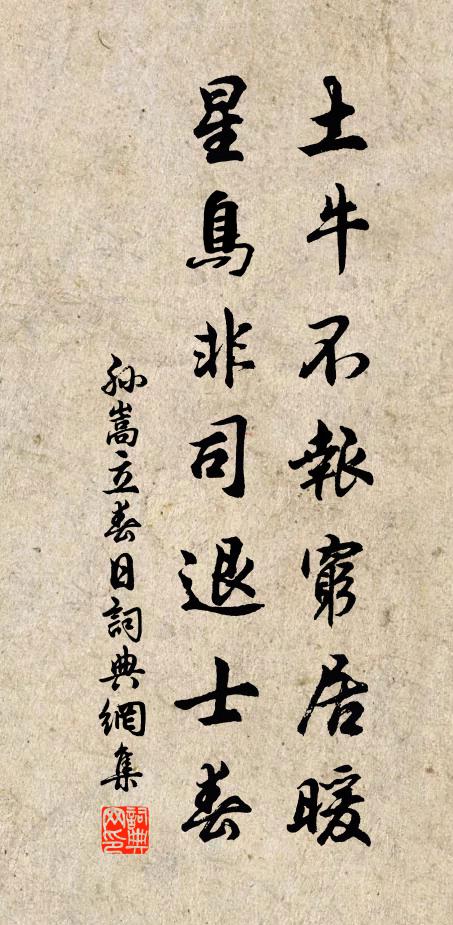 土牛不報窮居暖
星鳥非司退士春
孫嵩立春日詞典網集
詞典網印